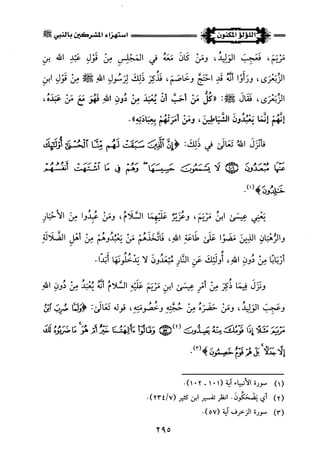 اللؤلؤ المكنون
استهزاء المشركين بالنبي ﷺ
مَرْيَمَ، فَعَجِبَ الوَلِيدُ، ومَنْ كَانَ مَعَهُ في المَجْلِسِ مِنْ قَوْلِ عَبْدِ اللهِ بنِ
الزِّبَعْرَى، ورَأَوْا أنَّهُ قَدِ احْتَجَّ وخَاصَمَ، فَذُكِرَ ذَلِكَ لِرَسُولِ اللهِ ﷺ مِنْ قَوْلِ ابنِ
الزِّبَعْرَى، فَقَالَ ﷺ: «كُلُّ مَنْ أحَبَّ أنْ يُعْبَدَ مِنْ دُونِ اللهِ فَهُوَ مَعَ مَنْ عَبَدَهُ،
إنَّهُمْ إنَّمَا يَعْبُدُونَ الشَّيَاطِينَ، ومَنْ أمَرَتْهُمْ بِعِبَادَتِهِ».
فَأنْزَلَ اللهُ تَعَالَى في ذَلِكَ: ﴿إِنَّ الَّذِينَ سَبَقَتْ لَهُم مِّنَّا الْحُسْنَى أُوْلَئِكَ
عَنْهَا مُبْعَدُونَ ۝ لَا يَسْمَعُونَ حَسِيسَهَا وَهُمْ فِي مَا اشْتَهَتْ أَنفُسُهُمْ
خَالِدُونَ﴾(١).
يَعْنِي عِيسَى ابنُ مَرْيَمَ، وعُزَيْرٌ عَلَيْهِمَا السَّلَامُ، ومَنْ عُبِدُوا مِنَ الأحْبَارِ
والرُّهْبَانِ الذِينَ مَضَوْا عَلَى طَاعَةِ اللهِ، فَاتَّخَذَهُمْ مَنْ يَعْبُدُوهُمْ مِنْ أهْلِ الضَّلَالَةِ
أرْبَابًا مِنْ دُونِ اللهِ، أُولَئِكَ عَنِ النَّارِ مُبْعَدُونَ لَا يَدْخُلُونَهَا أبَدًا.
ونَزَلَ فِيمَا ذُكِرَ مِنْ أمْرِ عِيسَى ابنِ مَرْيَمَ عَلَيْهِ السَّلَامُ أنَّهُ يُعْبَدُ مِنْ دُونِ اللهِ
وعَجِبَ الوَلِيدُ، ومَنْ حَضَرَهُ مِنْ حُجَّتِهِ وخُصُومَتِهِ، قوله تَعَالَى: ﴿وَلَمَّا ضُرِبَ ابْنُ
مَرْيَمَ مَثَلًا إِذَا قَوْمُكَ مِنْهُ يَصِدُّونَ(٢) ۝ وَقَالُوا أَآلِهَتُنَا خَيْرٌ أَمْ هُوَ مَا ضَرَبُوهُ لَكَ
إِلَّا جَدَلًا بَلْ هُمْ قَوْمٌ خَصِمُونَ﴾(٣).
(١) سورة الأنبياء آية (١٠١ - ١٠٢).
(٢) أي يَضْحَكُونَ. انظر تفسير ابن كثير (٢٣٤/٧).
(٣) سورة الزخرف آية (٥٧).
٢٩٥